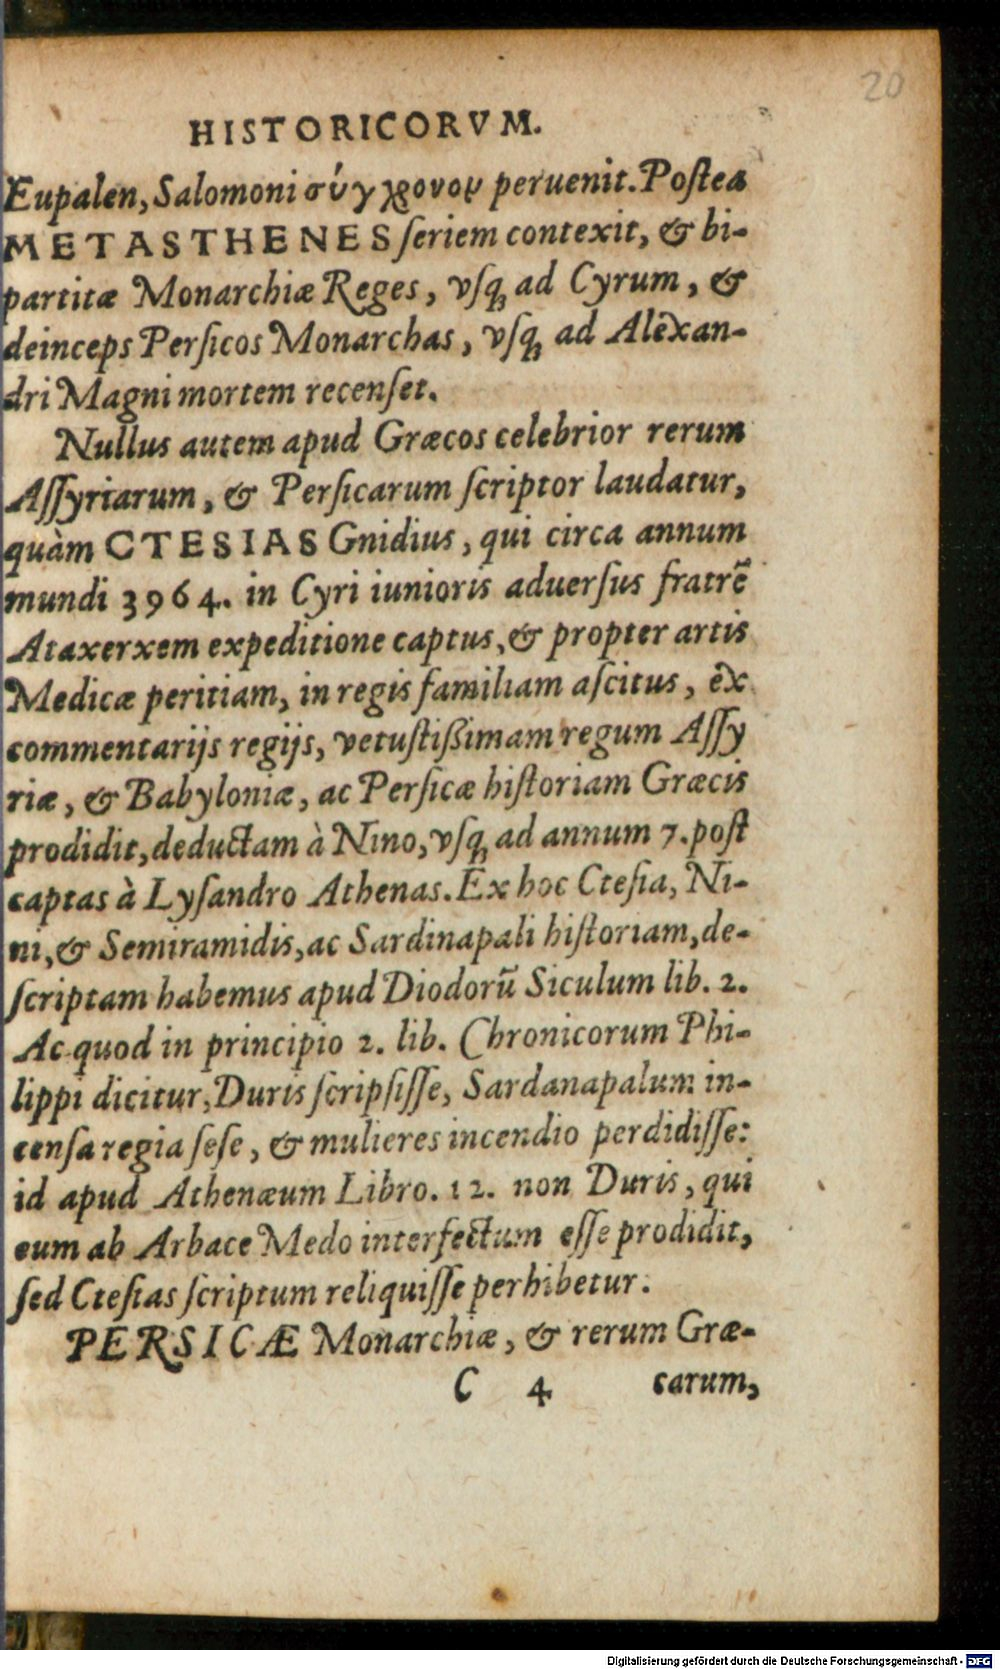 20
HISTORICORVM.
Eupalen, Salomoni σύγχρονον peruenit. Postea
METASTHENES seriem contexit, & bi-
partitæ Monarchiæ Reges, vsq; ad Cyrum, &
deinceps Persicos Monarchas, vsq; ad Alexan-
dri Magni mortem recenset.
Nullus autem apud Græcos celebrior rerum
Assyriarum, & Persicarum scriptor laudatur,
quàm CTESIAS Gnidius, qui circa annum
mundi 3964. in Cyri iunioris aduersus fratrē
Ataxerxem expeditione captus, & propter artis
Medicæ peritiam, in regis familiam ascitus, ex
commentarijs regijs, vetustißimam regum Assy
riæ, & Babyloniæ, ac Persicæ historiam Græcis
prodidit, deductam à Nino, vsq; ad annum 7. post
captas à Lysandro Athenas. Ex hoc Ctesia, Ni-
ni, & Semiramidis, ac Sardinapali historiam, de-
scriptam habemus apud Diodorū Siculum lib. 2.
Ac quod in principio 2. lib. Chronicorum Phi-
lippi dicitur, Duris scripsisse, Sardanapalum in-
censa regia sese, & mulieres incendio perdidisse:
id apud Athenæum Libro. 12. non Duris, qui
eum ab Arbace Medo interfectum esse prodidit,
sed Ctesias scriptum reliquisse perhibetur.
PERSICÆ Monarchiæ, & rerum Græ-
C 4 carum,
Digitalisierung gefördert durch die Deutsche Forschungsgemeinschaft - DFG